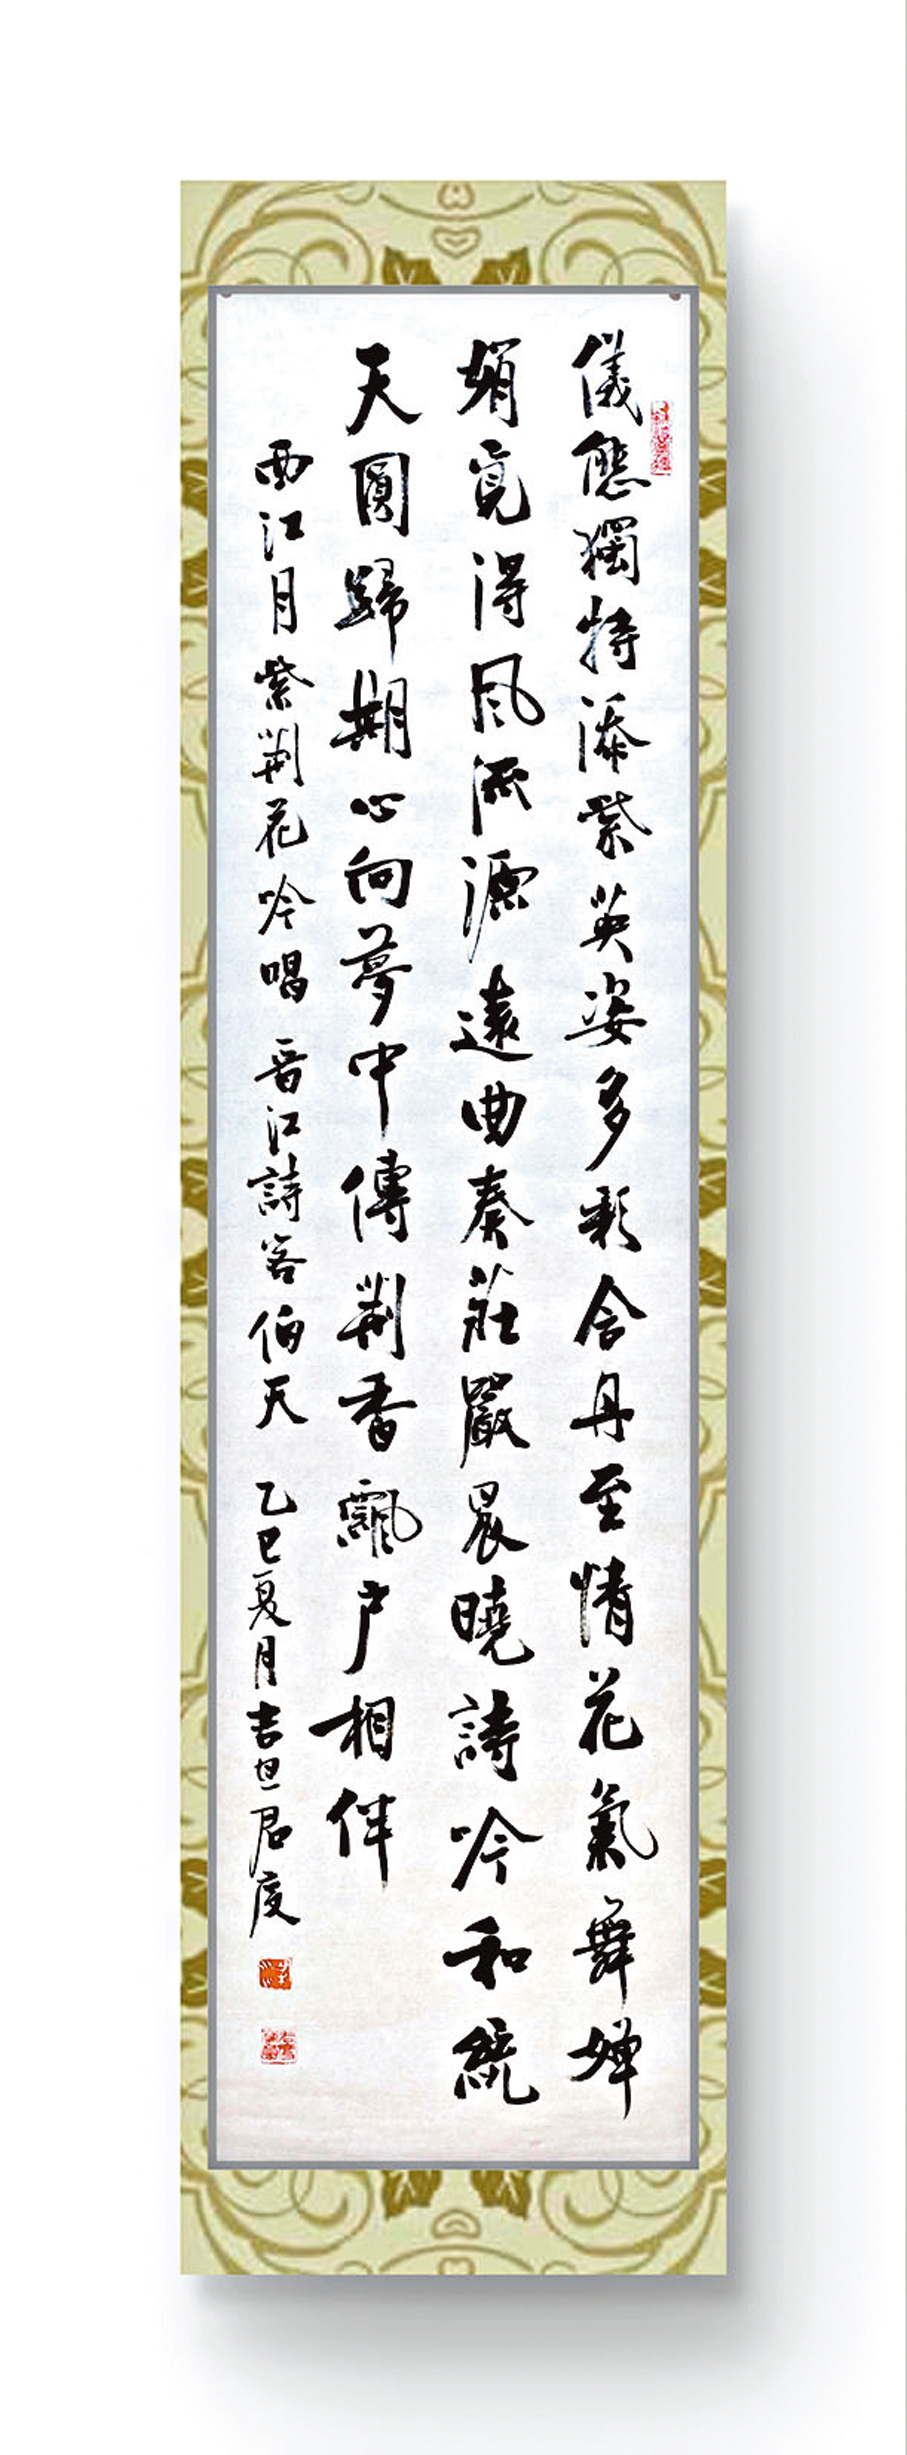 儀態獨特添紫英姿多彩含丹至情花氣舞嬋
娟覓得風流源遠曲奏莊嚴晨曉詩吟和統
天圓歸期心向夢中傳荆香飄户相伴
西江月紫荆花吟唱 晋江詩客伯天 乙巳夏月吉旦君度